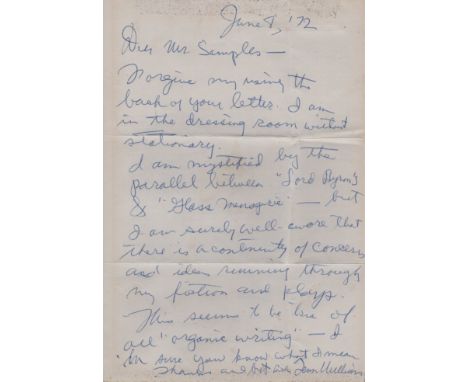 June 8, '72
Dear Mr Semples —
Forgive my using the
back of your letter. I am
in the dressing room without
stationary.
I am mystified by the
parallel between "Lord Byron's
& "Glass Menagerie" — but
I am surely well-aware that
there is a continuity of concerns
and ideas running through
my fiction and plays.
This seems to be true of
all "organic writing" — I
'm sure you know what I mean
Thanks and best Tenn Williams